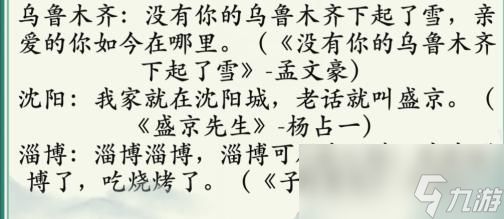 乌鲁木齐：没有你的乌鲁木齐下起了雪，亲
爱的你如今在哪里。（《没有你的乌鲁木齐
下起了雪》-孟文豪）
沈阳：我家就在沈阳城，老话就叫盛京。（
《盛京先生》-杨占一）
淄博：淄博淄博，淄博可
博了，吃烧烤了。（《子
九游